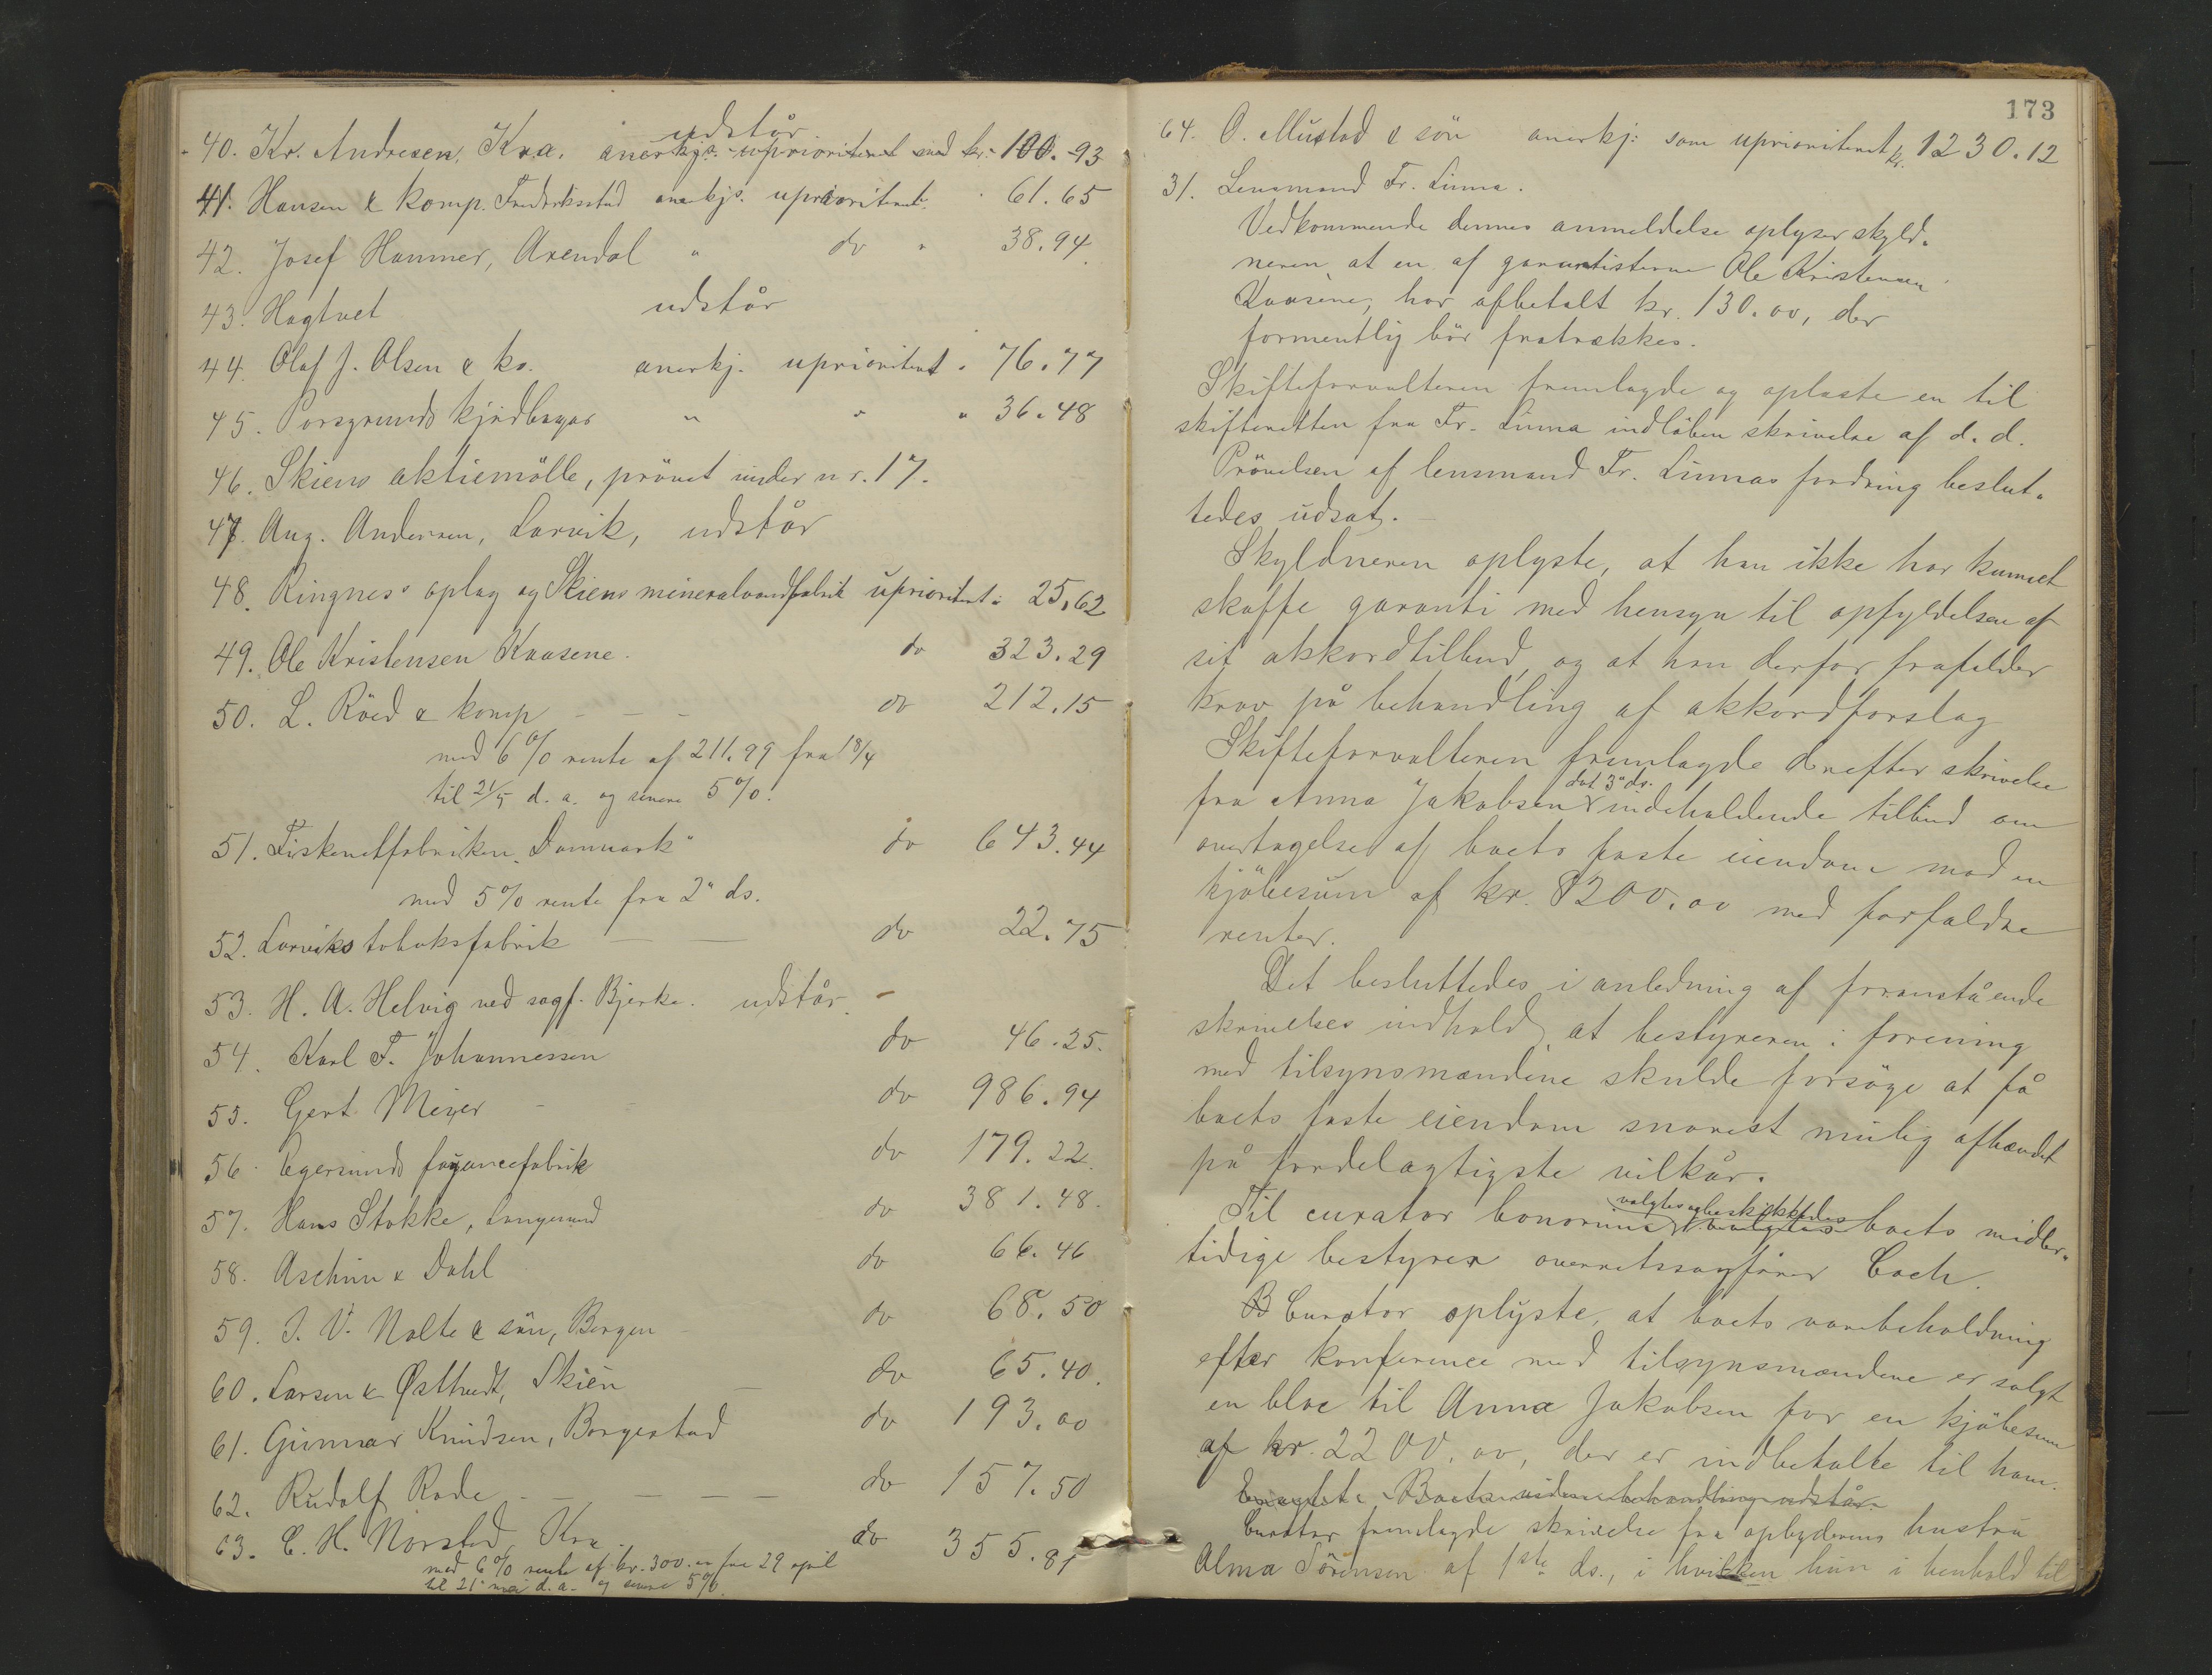 40. Kr. Andresen, Kra. udstår anerkjs. uprioriteret med kr. 100.93
41. Hansen & komp. Fredriksstad anerkjs. uprioriteret " 61.65
42. Josef Hammer, Arendal " do " 38.94
43. Hagtvet udstår
44. Olaf J. Olsen & ko. anerkj. uprioritert " 76.77
45. Porsgrunds kjødbasar " " " 36.48
46. Skiens aktiemölle, prövet under nr. 17.
47. Aug. Andersen, Larvik, udstår
48. Ringnes's oplag og Skiens mineralvandfabrik uprioritert " 25,62
49. Ole Kristensen Kaasene. do 323.29
50. L. Röed & komp — — — do 212.15
med 6 % rente af 211.99 fra 18/4
til 21/5 d. a. og senere 5 %.
51. Fiskenetfabriken "Danmark" do 643.44
med 5 % rente fra 2" ds.
52. Larviks tobaksfabrik — — do 22.75
53. H. A. Helvig ved sagf. Bjerke. udstår. —
54. Karl F. Johannessen do 46.25.
55. Gert Meyer - - do 986.94
56. Egersunds fayancefabrik do 179.22.
57. Hans Stokke, Langesund do 381.48.
58. Aschim & Dahl do 66.46
59. J. V. Nolte & sön, Bergen do 68.50
60. Larsen & Østtvedt, Skien — do 65.40.
61. Gunnar Knudsen, Borgestad do 193.00
62. Rudolf Rode - — — — do 157.50
63. C. H. Norstad, Kra. do 355.81
med 6 % rente af kr. 300.00 fra 29 april
til 21" mai d. a. og senere 5 %.
173
64. O. Mustad & sön anerkj: som uprioriteret kr. 1230.12
31. Lensmand Fr. Linna.
Vedkommende dennes anmeldelse oplyser skyld-
neren, at en af garantisterne Ole Kristensen
Kaasene, har afbetalt kr. 130.00, der
formentlig bör fratrækkes.
Skifteforvalteren fremlagde og oplæste en til
skifteretten fra Fr. Linna indlöben skrivelse af d. d.
Prövelsen af lensmand Fr. Linnas fordring beslut-
tedes udsat. —
Skyldneren oplyste, at han ikke har kunnet
skaffe garanti med hensyn til opfyldelsen af
sit akkordtilbud, og at han derfor frafalder
krav på behandling af akkordforslag
Skifteforvalteren fremlagde derefter skrivelse
fra Anna Jakobsen dat 3" ds. indeholdende tilbud om
overtagelse af boets faste eiendom mod en
kjöbesum af kr. 8200.00 med forfaldne
renter.
Det besluttedes i anledning af foranstående
skrivelses indhold, at bestyreren i forening
med tilsynsmændene skulde forsöge at få
boets faste eiendom snarest mulig afhændet
på fordelagtigste vilkår.
Til curator bonorum valgtes og beskikkedes valgtes boets midler-
tidige bestyrer overretssagförer Coch.
B Curator oplyste, at boets varebeholdning
efter konference med tilsynsmændene er solgt
en bloc til Anna Jakobsen for en kjöbesum
af kr. 2200.00, der er indbetalte til ham.
Boets videre behandling udstår.
Curator fremlagde skrivelse fra opbyderens hustru
Alma Sörensen af 1ste ds., i hvilken hun i henhold til